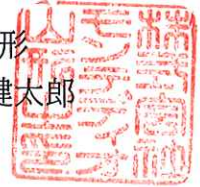 形
健太郎
株式会社
モンテディオ
山形